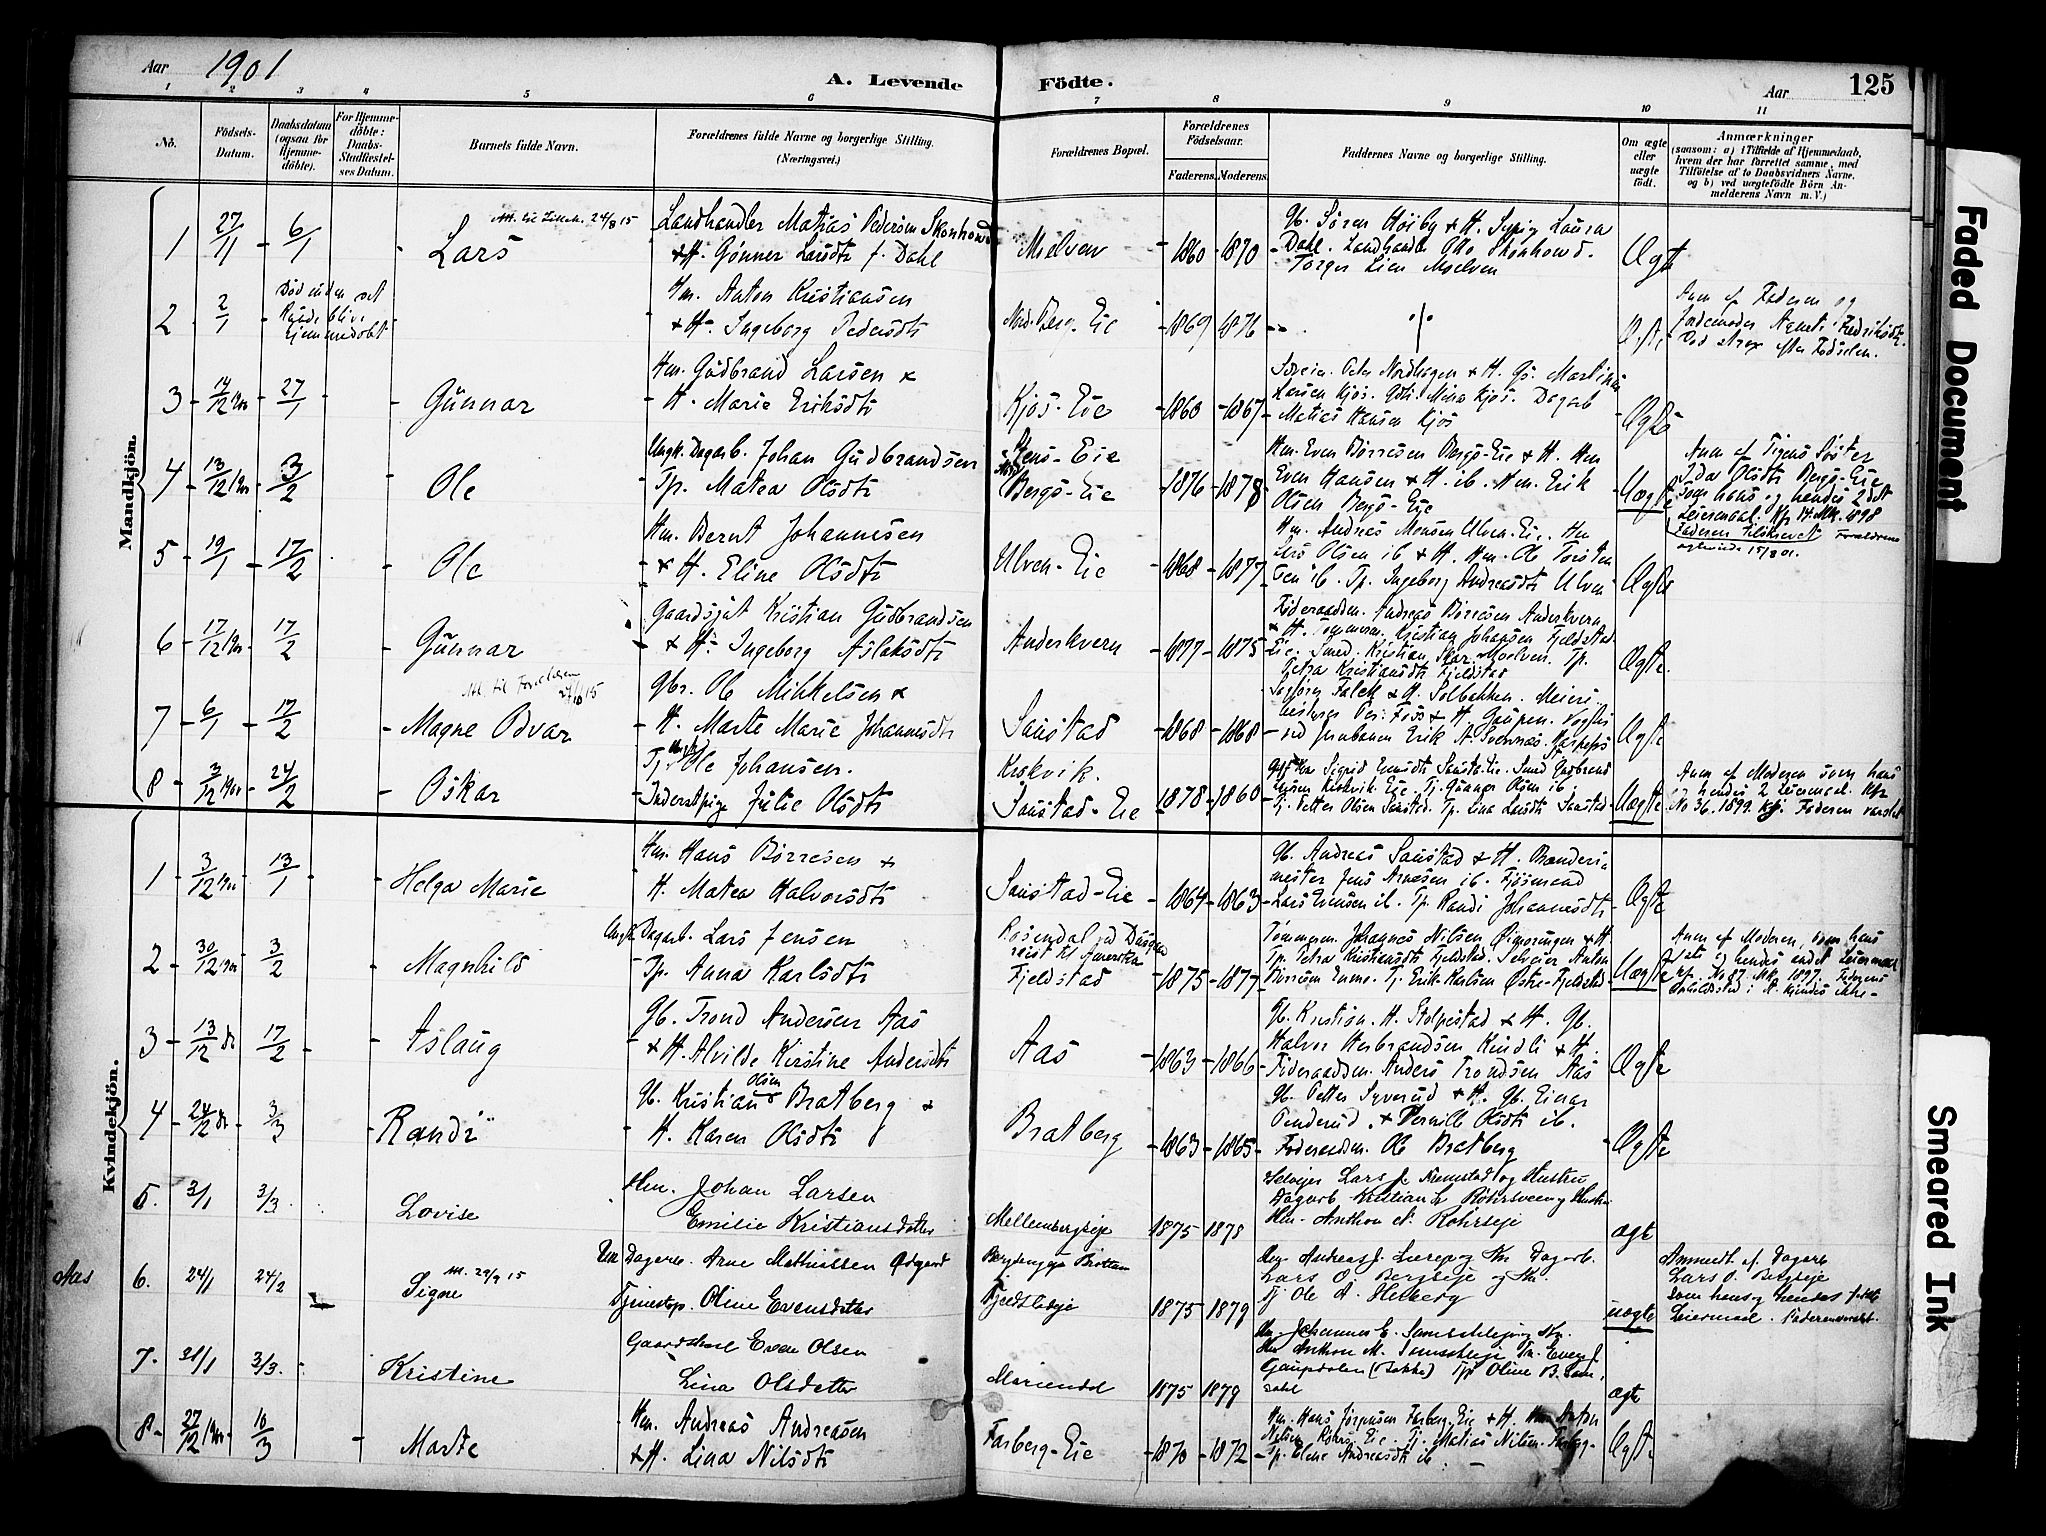 Aar 1901
A. Levende Födte.
Aar
125
1 2 3 4 5 6 7 8 9 10 11
No.
Födsels-Datum.
Daabsdatum (ogsaa for Hjemme-döbte).
For Hjemme-döbte: Daabs-Stadfæstel-ses Datum.
Barnets fulde Navn.
Forældrenes fulde Navne og borgerlige Stilling. (Næringsvei.)
Forældrenes Bopæl.
Forældrenes Födselsaar.
Faderens. Moderens.
Faddernes Navne og borgerlige Stilling.
Om ægte eller uægte födt.
Anmærkninger
(saasom: a) i Tilfælde af Hjemmedaab, hvem der har forrettet samme, med Tilföielse af to Daabsvidners Navne. og b) ved uægtefödte Börn An-melderens Navn m. V.)
Mandkjön.
1 27/11 6/1 Lars 24/8 15
Landhandler Matias Pedersen Skonhowd
& H. Gönner Larsdtr f. Dahl
Moelven 1860 1870
Gb. Sören Höiby & H. Laura
Dahl. Landhandl Otto Skonhowd.
Torger Lien Moelven
Ægte
2 2/1 Död inden det kunde blive hjemmedöbt
Hm. Anton Kristiansen
& H. Ingeborg Pedersdtr
Nord. Berg-Eie 1869 1876
Ægte
Anm af Faderen og
Jordemoder Agnete Fredriksdtr.
Död strax efter Födselen.
3 14/12 27/1 Gunnar
Hm. Gudbrand Larsen &
H. Marie Eriksdtr
Kjos-Eie 1860 1867
Peter Nordhagen & H. Martinus
Larsen Kjos. Mina Kjos. Dagarb
Matias Hansen Kjos
Ægte
4 13/12 3/2 Ole
Ungk. Dagarb. Johan Gudbrandsen
Tp. Matea Olsdtr
Stens-Eie
Bergs-Eie 1876 1878
Hm. Even Börresen Bergs-Eie & H. Hm
Even Hansen & H. ib. Hm. Erik
Olsen Bergs-Eie
Uægte
Anm af Pigens Söster
Ida Olsdtr Bergs-Eie
som hans og hendes 2det
Leiermaal. 1898
Faderen tilskrevet Forældrene
15/8 01.
5 19/1 17/2 Ole
Hm. Bernt Johannesen
& H. Eline Olsdtr
Ulven-Eie 1868 1877
Hm. Andreas Monsen Ulven-Eie. Hm
Lars Olsen ib & H. Hm. Ole Torsten
sen ib. Tp. Ingeborg Andreasdtr Ulven
Ægte
6 17/12 17/2 Gunnar
Gaardsejst Kristian Gudbrandsen
& H. Ingeborg Aslaksdtr
Anderkvern 1877 1875
Föderaadsm. Andreas Börresen Anderkvern
& H. Tömmerm. Kristian Johansen Fjeldstad
Eie. Smed Kristian Skar Moelven. Tp.
Petra Kristiansdtr Fjeldstad
Ægte
7 6/1 17/2 Magne Odvar
Gbr. Ole Mikkelsen &
H. Marte Marie Johannesdtr
Saustad 1868 1868
Falck & H. Solbakken. Meieri
Per Foss & H. Gaupen. Vogter
ved Jernbanen Erik A.
Ægte
8 3/12 24/2 Oskar
Tj. Ungk. Ole Johansen.
Inderstpige Julie Olsdtr
Krokvik.
Saustad-Eie 1878 1860
Sigrid Evensdtr Saustad-Eie. Smed Gudbrand
Larsen Krokvik Eie. Tj. Gunnar Olsen ib.
Tj. Petter Olsen Saustad. Tp. Lina Larsdtr Saustad
Uægte
Anm af Moderen som hans
og hendes 2 Leiermaal. Kfr
No 36. 1899. Faderen varslet
Kvindekjön.
1 3/12 13/1 Helga Marie
Hm. Hans Börresen &
H. Matea Halvorsdtr
Saustad-Eie 1864 1863
Gb. Andreas Saustad & H. Brænderi
mester Jens Arnesen ib. Fjösmand
Lars Evensen ib. Tp. Randi Johannesdtr
Ægte
2 30/12 3/2 Magnhild
Ungk. Dagarb. Lars Jensen
Tp. Anna Karlsdtr
Rosendal reist til Amerika
Fjeldstad 1875 1877
Tömmerm. Johannes Nilsen & H.
Tp. Petra Kristiansdtr Fjeldstad. Selveier Anton
Börresen Tj. Erik Karlsen Östre-Fjeldstad
Uægte
Anm af Moderen, som hans
1ste og hendes andet Leiermaal
Kfr. No 87. 1897. Faderens
Opholdssted i A. kjendes ikke
3 13/12 17/2 Aslaug
Gb. Trond Andersen Aas
& H. Alvilde Kirstine Andersdtr
Aas 1863 1866
Gb. Kristian H. Stolpestad & H. Gb.
Halvor Herbrandsen Kindli & H.
Föderaadsm. Anders Trondsen Aas
Ægte
4 24/12 3/3 Randi
Gb. Kristian Olsen Bratberg &
H. Karen Olsdtr
Bratberg 1863 1865
Gb. Petter Syverud & H. Gb. Einar
Penderud. & Pernille Olsdtr ib.
Föderaadsm. Ole Bratberg
Ægte
5. 3/1 3/3. Lovise
Hm. Johan Larsen
Emilie Kristiansdatter
Mellembergseje 1875 1878
Selvejer Lars J. Kremstad og Hustru
Dagarb. Kristian L. og Hustru
Hm. Anthon N. Rohrseje
ægt
Aas 6. 24/1 24/2 Signe 29/9 15
Dagarb. Arne Mathiassen Ødegaard
Tjenestep. Oline Evensdatter
Fjeldstadeje 1875 1879
Hm. Andreas J. og Hu. Dagarb.
Lars O. Bergseje og Hu.
Tj. Ole A. Helberg
uægte
Anmeldt af Dagarb
Lars O. Bergseje
som hans og hendes förste
Leiermaal.
7. 31/1 3/3. Kristine
Even Olsen
Lina Olsdatter
Mariendal 1875 1879
Hm. Johannes E. og Hu.
Hm. Anthon M. Even J.
Gaupedalen Tp. Oline B.
ægt
8 27/12 10/3 Marte
Hm. Andreas Andreasen
& H. Lina Nilsdtr
Farberg-Eie 1870 1872
Hm. Hans Jörgensen Farberg-Eie & H. Hm. Anton
Nilsen Rörs-Eie. Tj. Matias Nilsen Farberg
Tp. Eline Andreasdtr ib.
Ægte
Faded Document
Smeared Ink